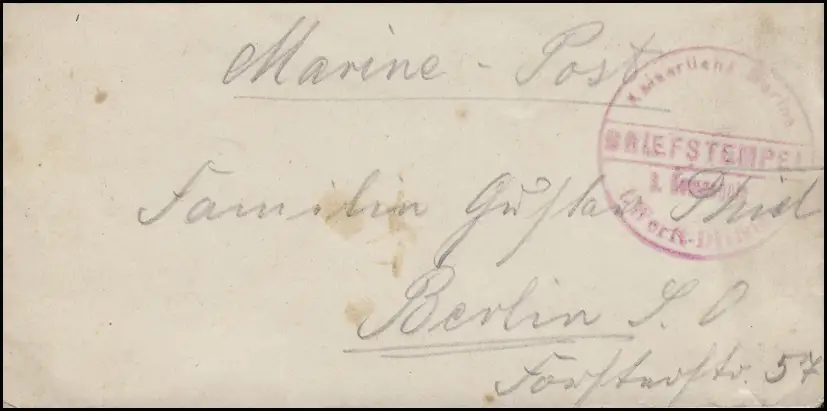 Marine - Post
Kaiserliche Marine
BRIEFSTEMPEL
Werft-Division
Familie Gustav Thiel
Berlin S. O
Forsterstr. 57